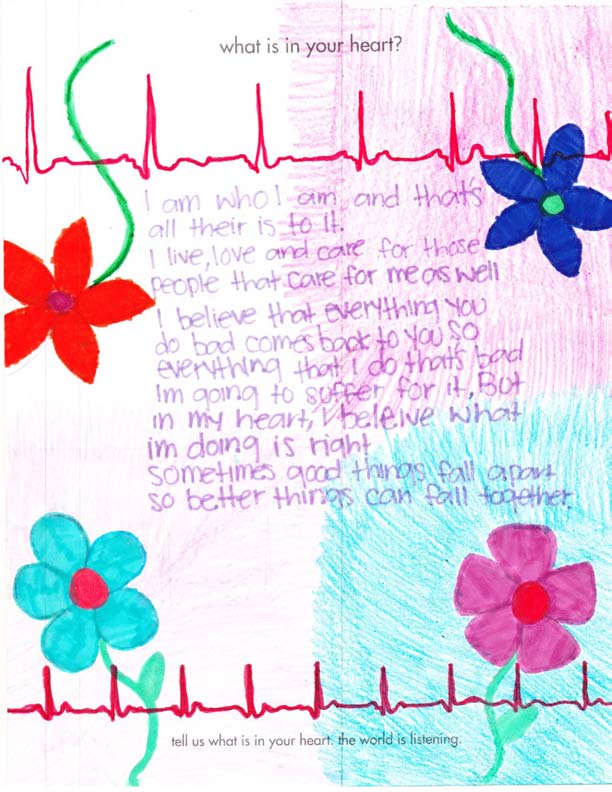 what is in your heart?
I am who I am and that's
all their is to it.
I live, love and care for those
people that care for me as well
I believe that everything you
do bad comes back to you so
everything that I do that's bad
Im going to suffer for it, But
in my heart, I beleive what
im doing is right
sometimes good things fall apart
so better things can fall together.
tell us what is in your heart. the world is listening.